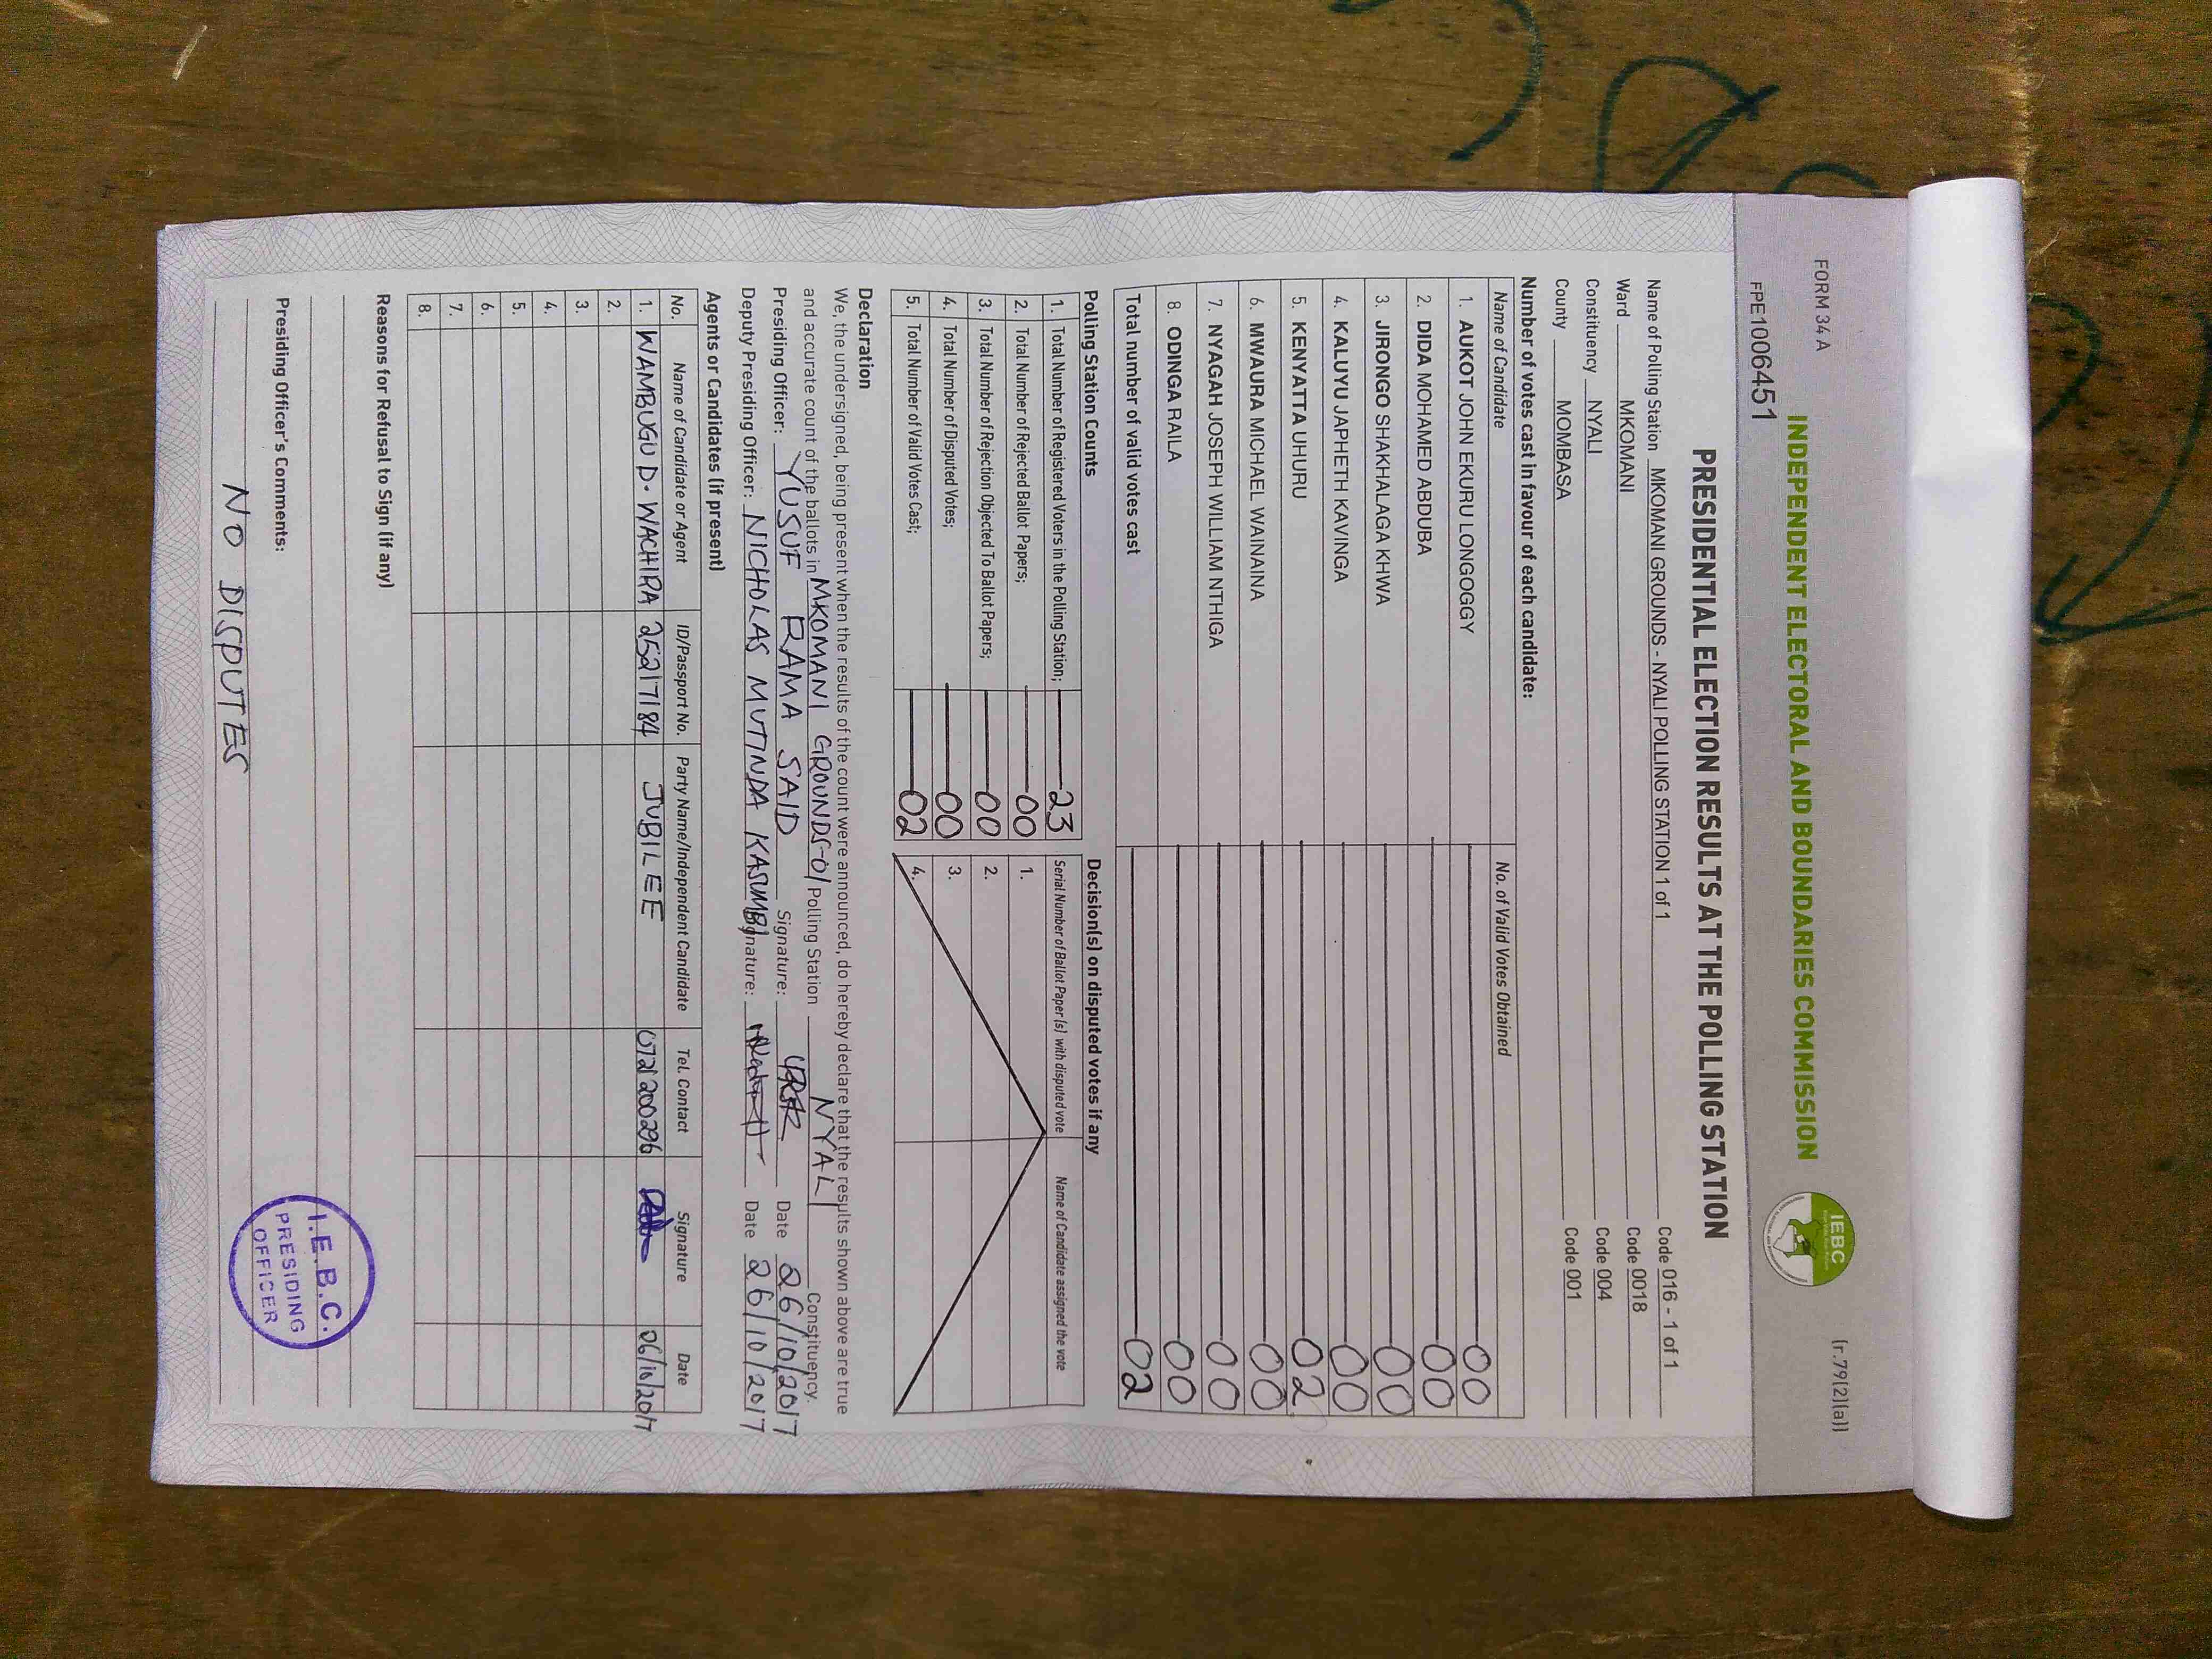 FORM 34 A
(r.79(2)(a))
INDEPENDENT ELECTORAL AND BOUNDARIES COMMISSION
IEBC
FPE1006451
PRESIDENTIAL ELECTION RESULTS AT THE POLLING STATION
Name of Polling Station MKOMANI GROUNDS - NYALI POLLING STATION 1 of 1 Code 016 - 1 of 1
Ward MKOMANI Code 0018
Constituency NYALI Code 004
County MOMBASA Code 001
Number of votes cast in favour of each candidate:
Name of Candidate No. of Valid Votes Obtained
1. AUKOT JOHN EKURU LONGOGGY 00
2. DIDA MOHAMED ABDUBA 00
3. JIRONGO SHAKHALAGA KHWA 00
4. KALUYU JAPHETH KAVINGA 00
5. KENYATTA UHURU 02
6. MWAURA MICHAEL WAINAINA 00
7. NYAGAH JOSEPH WILLIAM NTHIGA 00
8. ODINGA RAILA 00
Total number of valid votes cast 02
Polling Station Counts
1. Total Number of Registered Voters in the Polling Station; 23
2. Total Number of Rejected Ballot Papers; 00
3. Total Number of Rejection Objected To Ballot Papers; 00
4. Total Number of Disputed Votes; 00
5. Total Number of Valid Votes Cast; 02
Decision(s) on disputed votes if any
Serial Number of Ballot Paper (s) with disputed vote Name of Candidate assigned the vote
1.
2.
3.
4.
Declaration
We, the undersigned, being present when the results of the count were announced, do hereby declare that the results shown above are true
and accurate count of the ballots in MKOMANI GROUNDS-01 Polling Station NYALI Constituency.
Presiding Officer: YUSUF RAMA SAID Signature: Date 26/10/2017
Deputy Presiding Officer: NICHOLAS MUTINDA KASUMBI Signature: Date 26/10/2017
Agents or Candidates (if present)
No. Name of Candidate or Agent ID/Passport No. Party Name/Independent Candidate Tel. Contact Signature Date
1. WAMBUGU D. WACHIRA 25217184 JUBILEE 0721200296 26/10/2017
2.
3.
4.
5.
6.
7.
8.
Reasons for Refusal to Sign (if any)
Presiding Officer's Comments:
NO DISPUTES
I.E.B.C.
PRESIDING
OFFICER